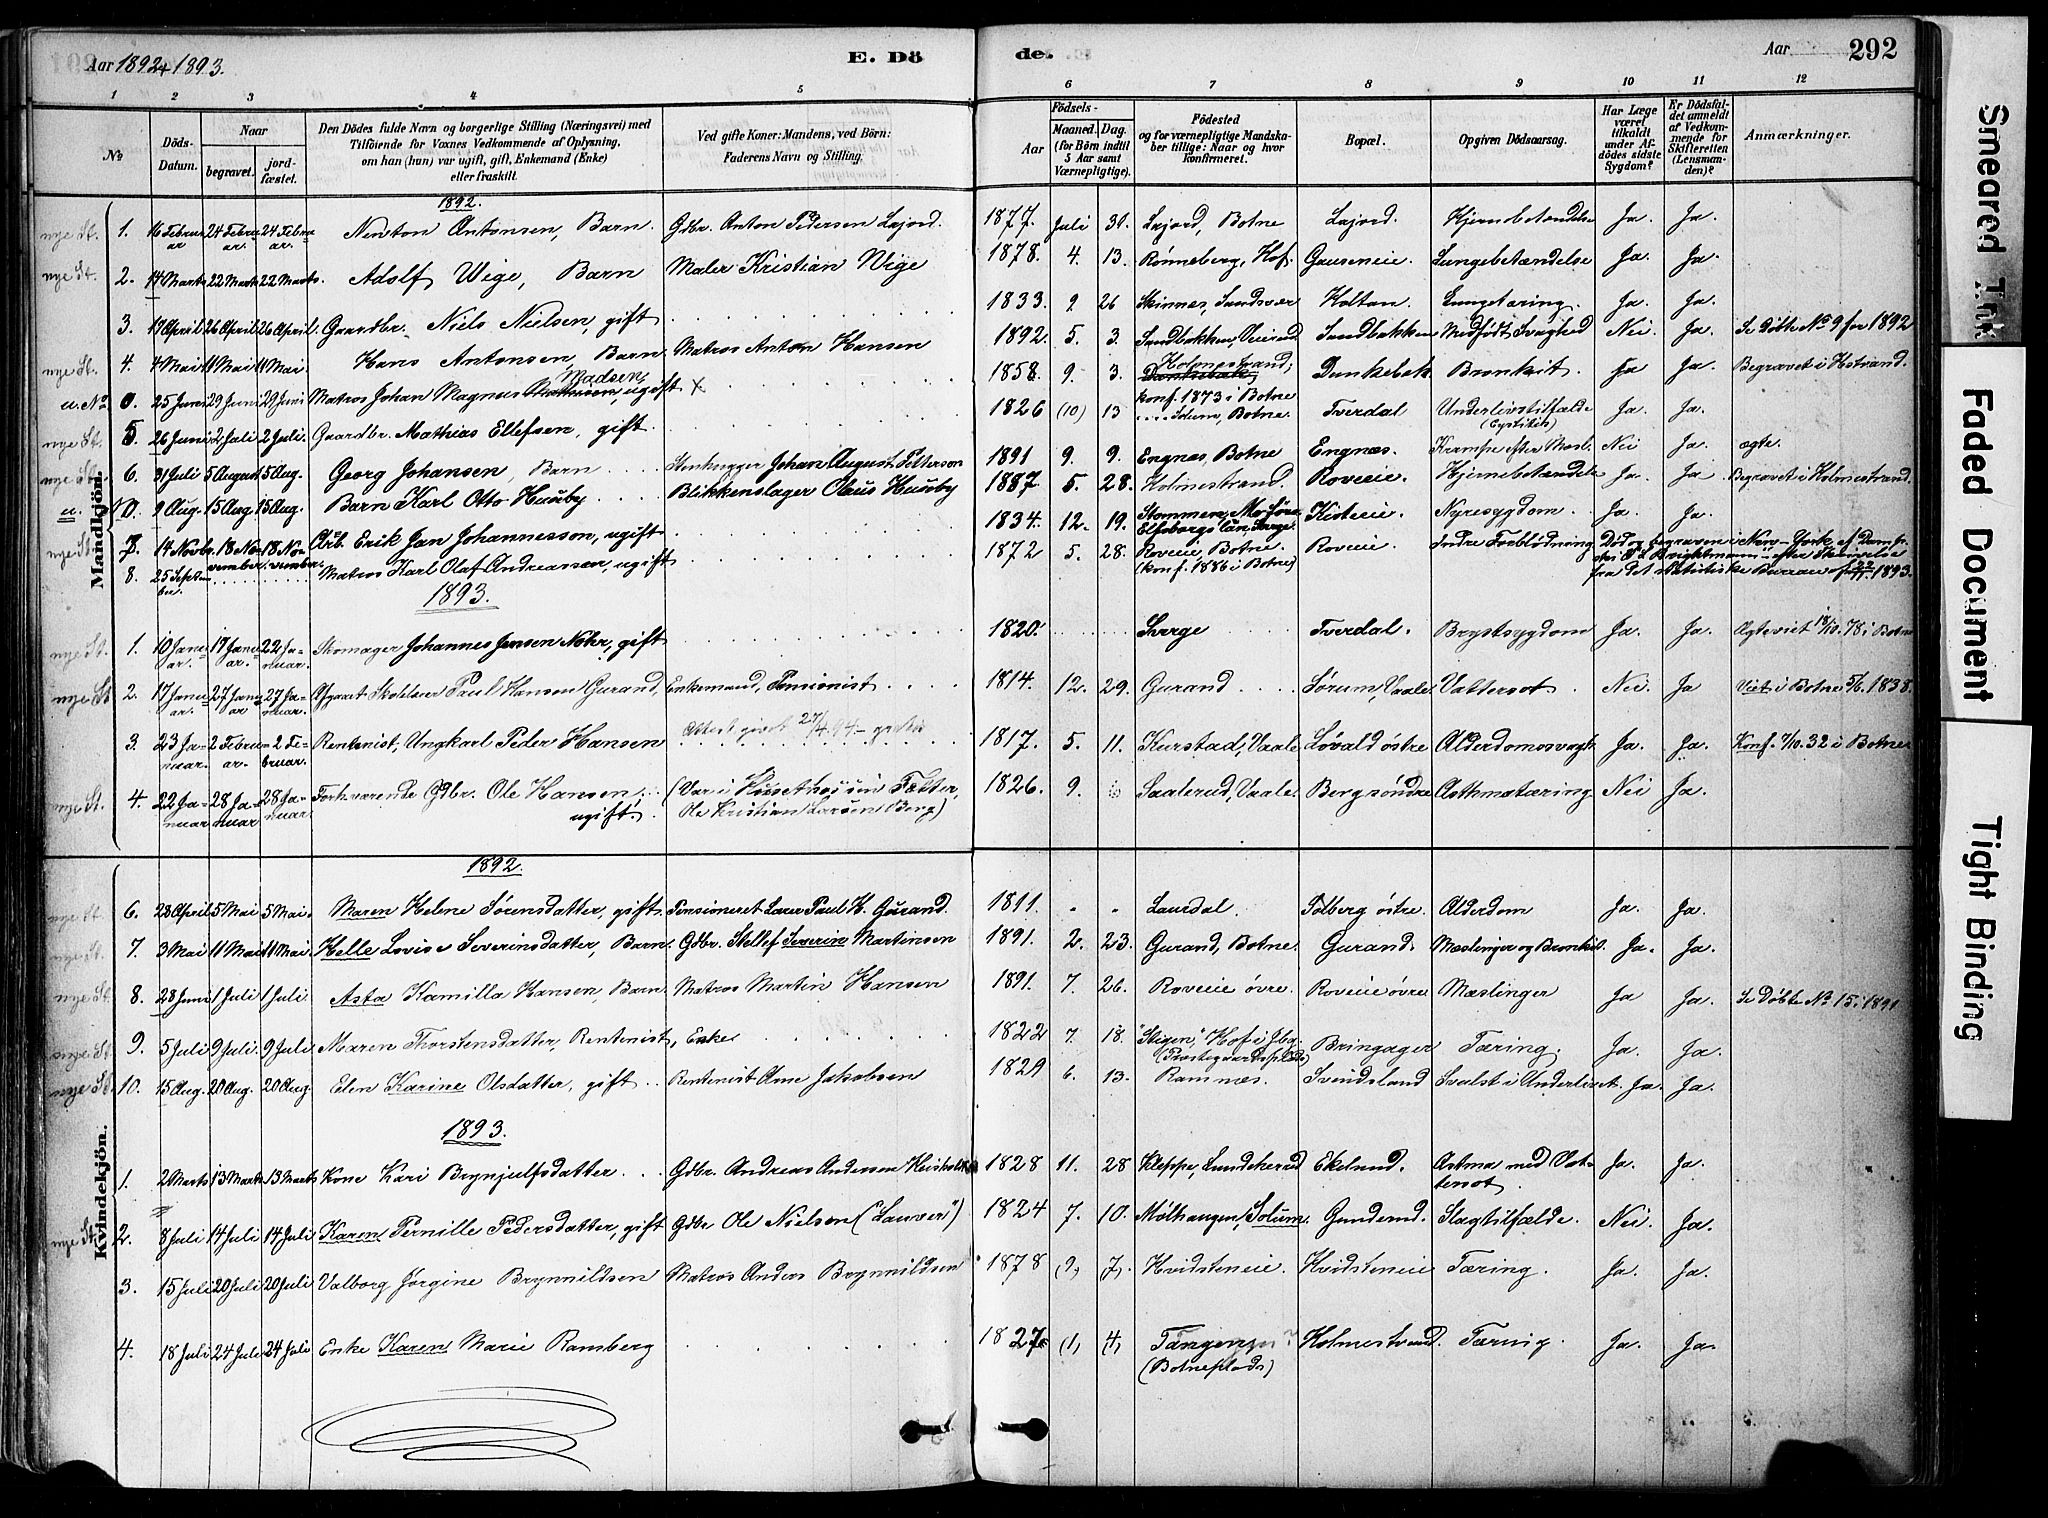 Aar 1892 + 1893.
E. Dö
de.
Aar
292
1 2 3 4 5 6 7 8 9 10 11 12
No
Döds-Datum.
Naar
begravet.
jord-fæstet.
Den Dödes fulde Navn og borgerlige Stilling (Næringsvei) med
Tilföiende for Voxnes Vedkommende af Oplysning,
om han (hun) var ugift, gift, Enkemand (Enke)
eller fraskilt.
Ved gifte Koner: Mandens, ved Börn:
Faderens Navn og Stilling.
Födsels-
Aar
Maaned. Dag.
(for Börn indtil
5 Aar samt
Værnepligtige).
Födested
og for værnepligtige Mandska-
ber tillige: Naar og hvor
konfirmeret.
Bopæl.
Opgiven Dödsaarsag.
Har Læge
været
tilkaldt
under Af-
dödes sidste
Sygdom?
Er Dödsfal-
det anmeldt
af Vedkom-
mende for
Skifteretten
(Lensman-
den)?
Anmærkninger.
Mandkjön.
1892.
nye St. 1. 16 Februar 24 Februar. 24 Februar. Newton Antonsen, Barn. Gdbr. Anton Pedersen Lajord. 1877. Juli 31. Lajord, Botne Lajord. Hjernebetændelse Ja. Ja.
nye St. 2. 14 Marts 22 Marts 22 Marts. Adolf Wige, Barn Maler Kristian Wige 1878. 4. 13. Rønneberg, Hof. Gauseneie. Lungebetændelse Ja. Ja.
3. 19 April 26 April 26 April. Gaardbr. Niels Nielsen, gift 1833. 9 26 Skinnes, Sandsvær Holtan. Lungetæring. Ja. Ja.
nye St. 4. 4 Mai 11 Mai 11 Mai. Hans Antonsen, Barn Matros Anton Hansen 1892. 5. 3. Sandbakken, Veierud Sandbakken Medfødt Svaghed Nei. Ja. Se Døbte No 9 for 1892
u. No 0. 25 Juni 29 Juni 29 Juni Matros Johan Magnus Madsen, ugift × 1858. 9. 3. Holmestrand, konf. 1873 i Botne Dunkebak. Bronkit. Ja Ja. Begravet i Hstrand.
nye St. 5. 26 Juni 2 Juli 2 Juli. Gaardbr. Mathias Ellefsen, gift 1826 (10) 13 Solum, Botne. Tverdal Underlivstilfælde (Cystitis) Ja. Ja.
nye St. 6. 31 Juli 5 August 5 Aug. Georg Johansen, Barn Stenhugger Johan August Petterson 1891 9. 9. Engnæs, Botne Engnæs. Krampe efter Mæsl. Nei Ja. ægte.
u. No 0. 9 Aug. 15 Aug. 15 Aug. Barn Karl Otto Husby Blikkenslager Olaus Husby 1887. 5. 28. Holmestrand. Roveie. Hjernebetændelse Ja. Ja Begravet i Holmestrand.
nye St. 7. 14 Novbr. 18 November. 18 November. Arb. Erik Jan Johannesson, ugift 1834. 12. 19. Stommen, Elfsborgs län, Sverge. Kisteeie. Nyresygdom. Ja. Ja.
8. 25 September. Matros Karl Olaf Andreassen, ugift 1872 5. 28. Roveie, Botne. (konf. 1886 i Botne) Roveie. Indre Forblødning. Død og begraven i New-York
fra det statistiske Bureau af 22/11. 1893.
1893.
nye St. 1. 10 Januar. 17 Januar. 22 Januar. Skomager Johannes Jensen Nohr, gift 1820. Sverge Tverdal. Brystsygdom Ja. Ja. Ægteviet 18/10. 78 i Botne
nye St 2. 17 Januar. 27 Januar 27 Januar. Afgaaet Skolelærer Paul Hansen Gurand, Enkemand, Pensionist 1814. 12. 29. Gurand Sørum, Vaale Vattersot. Nei. Ja Viet i Botne 5/6. 1838.
3. 23 Januar. 2 Februar. 2 Februar. Rentenist, Ungkarl Peder Hansen Attest givet 27/4. 94. gratis 1817. 5. 11. Kurstad, Vaale Løvald østre Alderdomssvagh. Ja. Ja. Konf. 7/10. 32 i Botne
nye St. 4. 22 Januar 28 Januar 28 Januar. Forhværende Gdbr. Ole Hansen, ugift. (Var i Huset hos sin Fætter, Ole Kristian Larsen Berg) 1826. 9. Saalerud, Vaale. Berg søndre Asthmatæring Nei Ja.
Kvindekjön.
1892.
nye St. 6. 28 April 5 Mai 5 Mai. Maren Helene Sørensdatter, gift. Pensioneret Lærer Paul H. Gurand. 1811. " " Laurdal. Solberg østre. Alderdom Ja. Ja.
nye St. 7. 3 Mai 11 Mai 11 Mai. Helle Lovise Severinsdatter, Barn. Gdbr. Stellef Severin Martinsen 1891. 2. 23. Gurand, Botne. Gurand. Mæslinger og Bronkit. Ja. Ja.
nye St. 8. 28 Juni 1 Juli 1 Juli. Asta Kamilla Hansen, Barn. Matros Martin Hansen 1891. 7. 26. Roveie øvre. Roveie øvre Mæslinger Ja Ja. Se Døbte No. 15. 1891
nye St. 9. 5 Juli 9 Juli. 9 Juli. Maren Thorstensdatter, Rentenist, Enke 1822 7 18. "Stigen", Hof i Jbg. Bringager Tæring. Ja. Ja.
nye St. 10. 15 Aug. 20 Aug. 20 Aug Elen Karine Olsdatter, gift. Rentenist Arne Jakobsen 1829 6. 13. Ramnæs. Svindsland Svulst i Underlivet. Ja. Ja.
1893.
1. 2 Marts 13 Marts 13 Marts Kone Kari Brynjulfsdatter Gdbr. Andreas Andersen 1828 11. 28 Kleppe, Lundeherad Ekelund. Astma med Vattersot. Ja. Ja.
nye St. 2. 8 Juli 14 Juli 14 Juli Karen Pernille Pedersdatter, gift Gdbr Ole Nielsen ("Lauver") 1824 7. 10. Mølhaugen, Solum. Gunderud. Slagtilfælde. Nei. Ja.
3. 15 Juli 20 Juli 20 Juli Valborg Jørgine Brynnildsen Matros Anders Brynnildsen 1878 (9) (7). Hvidsteneie. Hvidsteneie Tæring. Ja. Ja.
4. 18 Juli 24 Juli 24 Juli Enke Karen Marie Ramberg 1827. (1) (4) (Botneplads) Holmestrand. Tæring. Ja. Ja.
Smeared Ink
Faded Document
Tight Binding